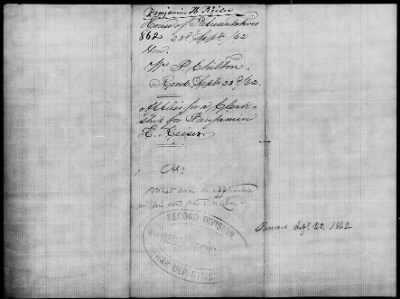 Benjamin H. Keiser
House of Representatives
862 22d Sept, 62
Hon.
W. P. Chilton.
Recd. Sept. 23d/62.
Applies for a Clerk-
ship for Benjamin
H. Keiser.
RECORD DIVISION
WAR DEPARTMENT
Answd Sept. 22 1862